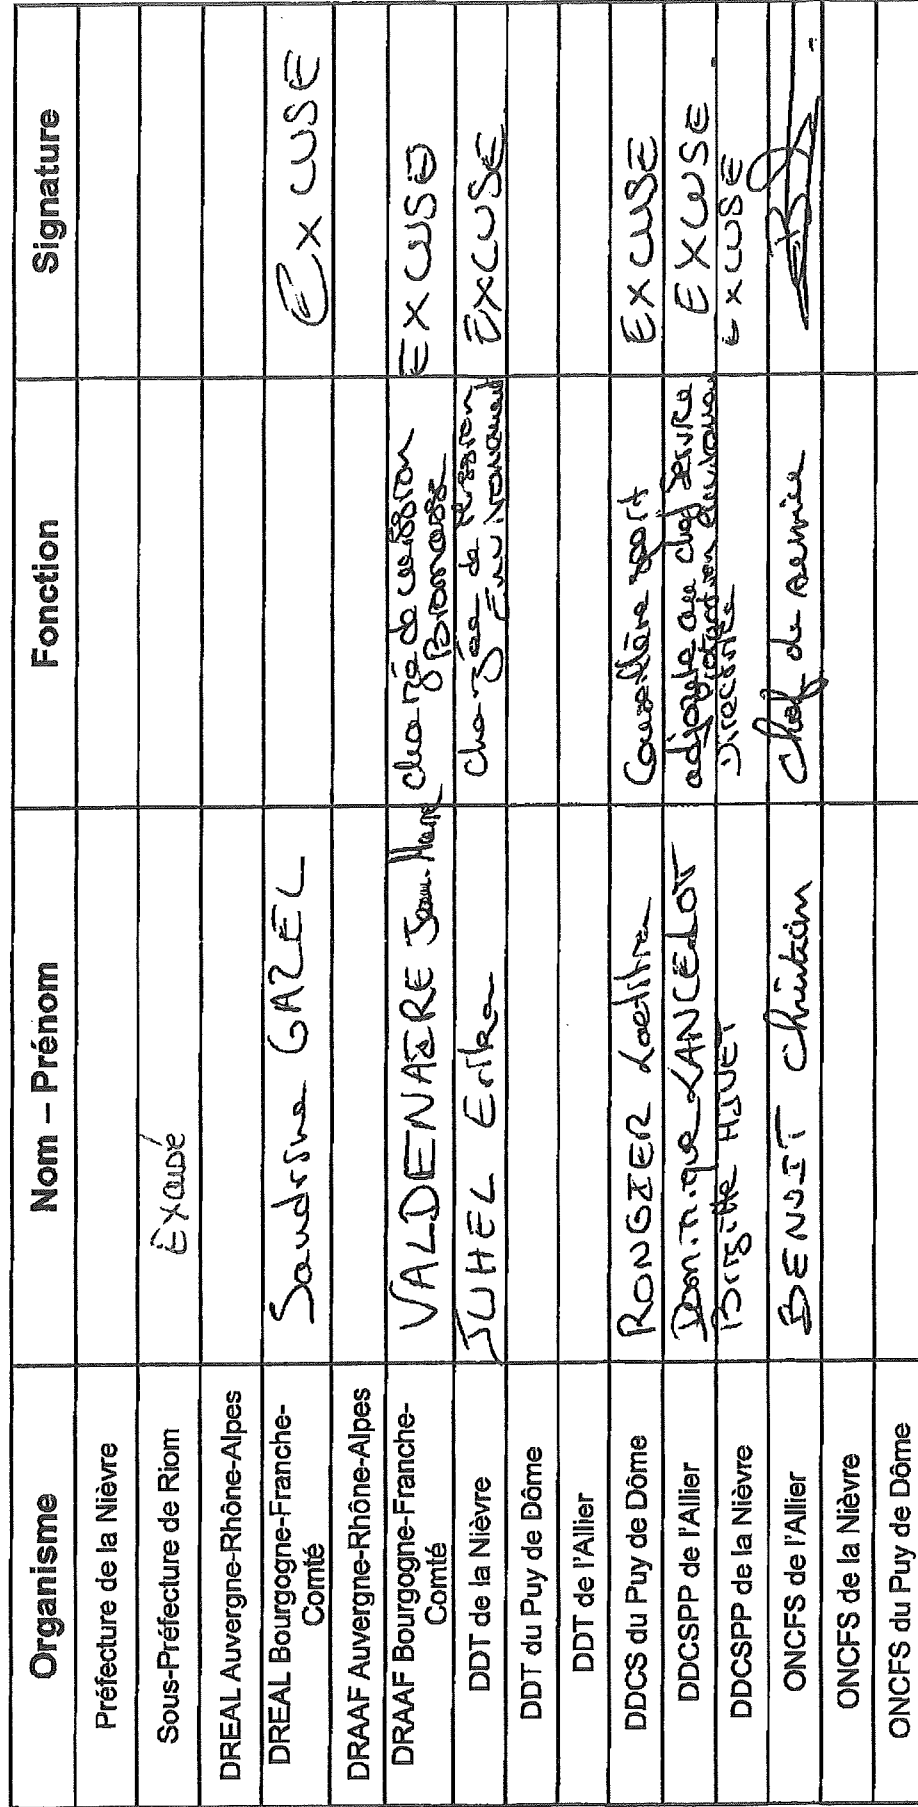 Organisme Nom – Prénom Fonction Signature
Préfecture de la Nièvre
Sous-Préfecture de Riom Excusé
DREAL Auvergne-Rhône-Alpes
DREAL Bourgogne-Franche- Sandrine GAZEL EXCUSE
Comté
DRAAF Auvergne-Rhône-Alpes
DRAAF Bourgogne-Franche- VALDENAIRE Jean-Marie chargé de mission EXCUSE
Comté Biomasse
DDT de la Nièvre JUHEL Erika chargée de mission EXCUSE
Environnement
DDT du Puy de Dôme
DDT de l'Allier
DDCS du Puy de Dôme RONGIER Laetitia Conseillère sport EXCUSE
DDCSPP de l'Allier Dominique LANCELOT adjointe au chef service EXCUSE.
protection
DDCSPP de la Nièvre Brigitte HIVET Directrice EXCUSE
ONCFS de l'Allier BENOIT Christian Chef de service
ONCFS de la Nièvre
ONCFS du Puy de Dôme